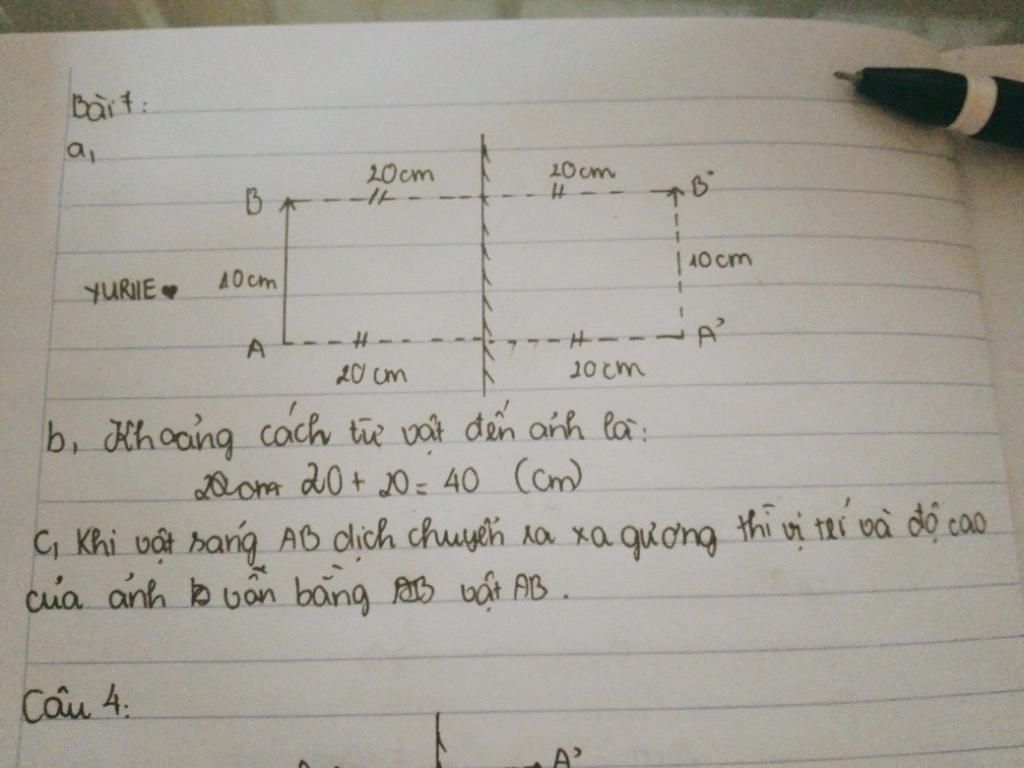 Bài 7:
a,
20cm 20cm
B B'
10cm 10cm
YURIIE
A A'
20 cm 20cm
b, Khoảng cách từ vật đến ảnh là:
20 + 20 = 40 (cm)
c, Khi vật sáng AB dịch chuyển ra xa gương thì vị trí và độ cao
của ảnh vẫn bằng vật AB.
Câu 4:
A'